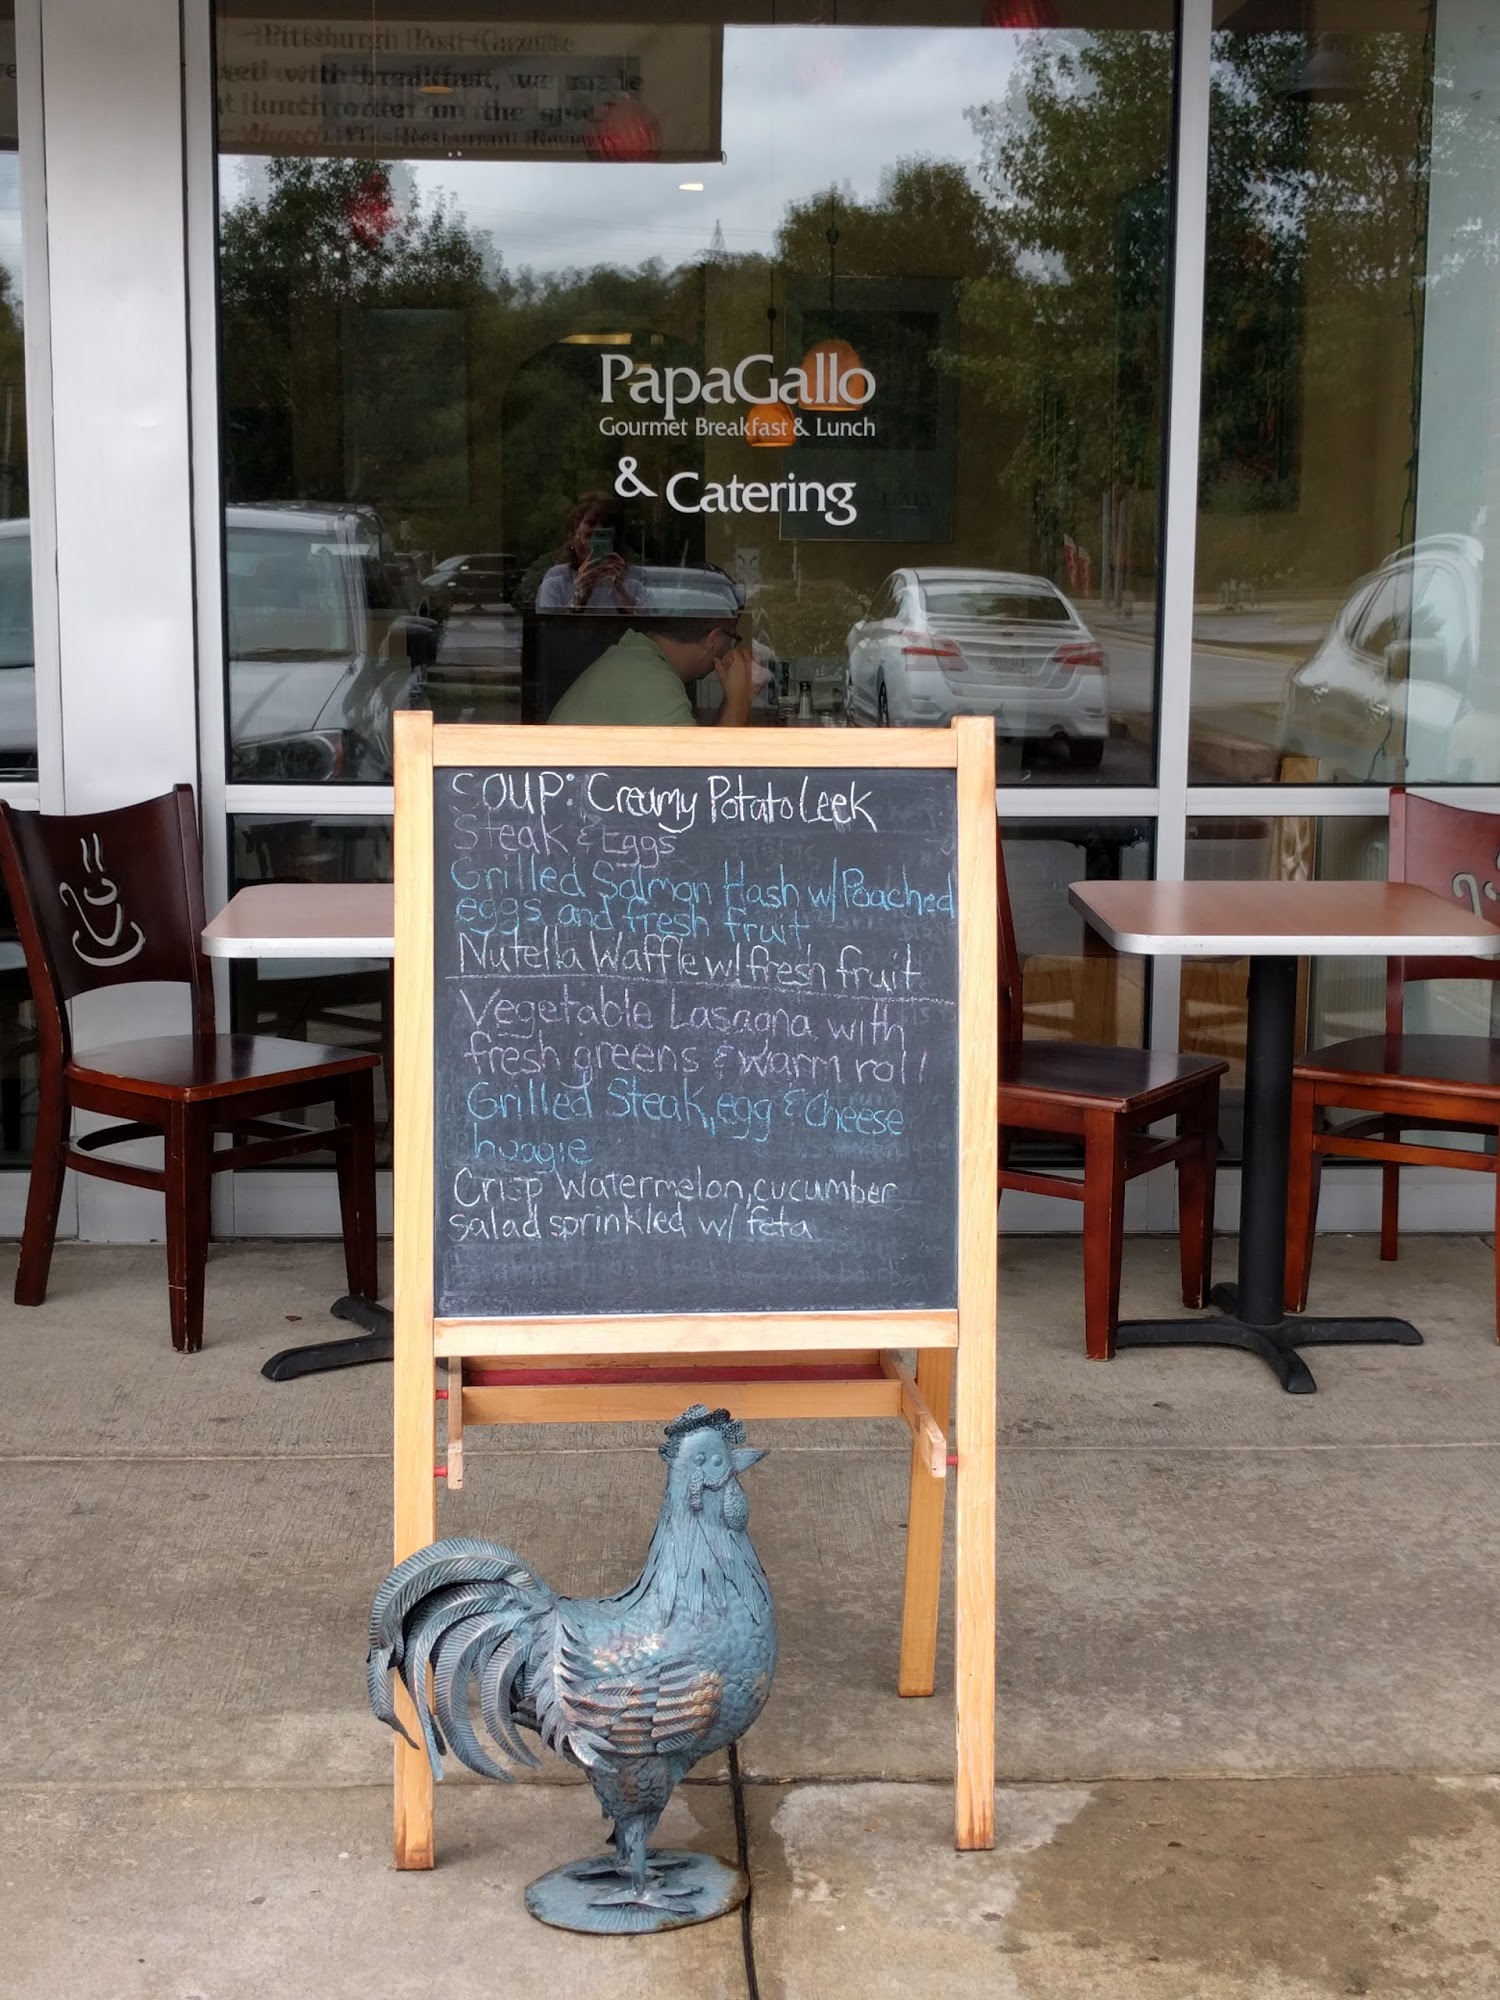 Pittsburgh Post-Gazette
sed with breakfast, we made
at lunch order on the spot
Restaurant Review
PapaGallo
Gourmet Breakfast & Lunch
& Catering
ITALY
SOUP: Creamy Potato Leek
Steak & Eggs
Grilled Salmon Hash w/ Poached
eggs and fresh fruit
Nutella Waffle w/ fresh fruit
Vegetable Lasagna with
fresh greens & warm roll
Grilled Steak, egg & Cheese
hoagie
Crisp Watermelon, cucumber
salad sprinkled w/ feta